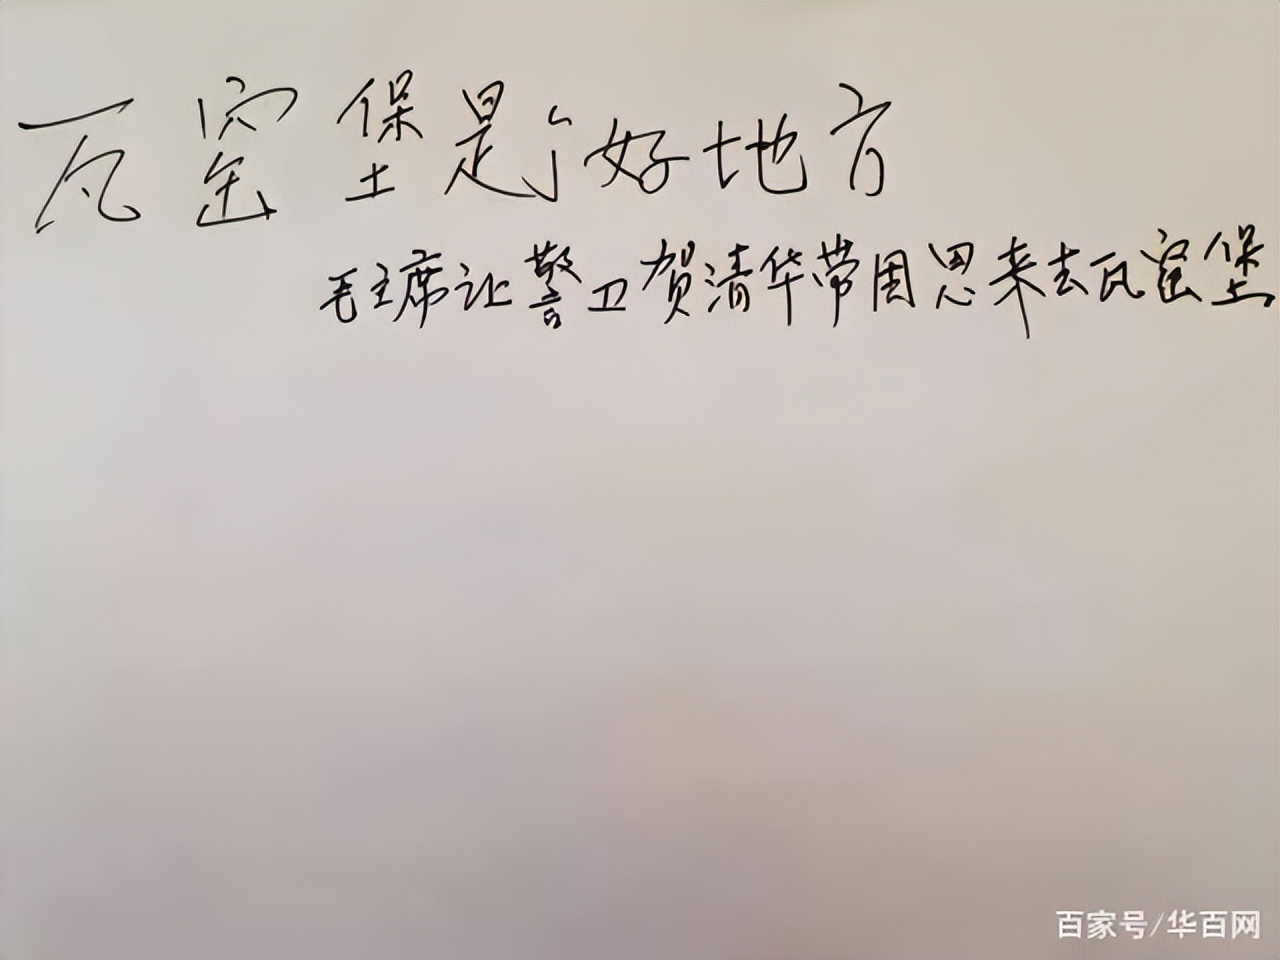 瓦窑堡是个好地方
毛主席让警卫贺清华带周恩来去瓦窑堡
百家号/华百网